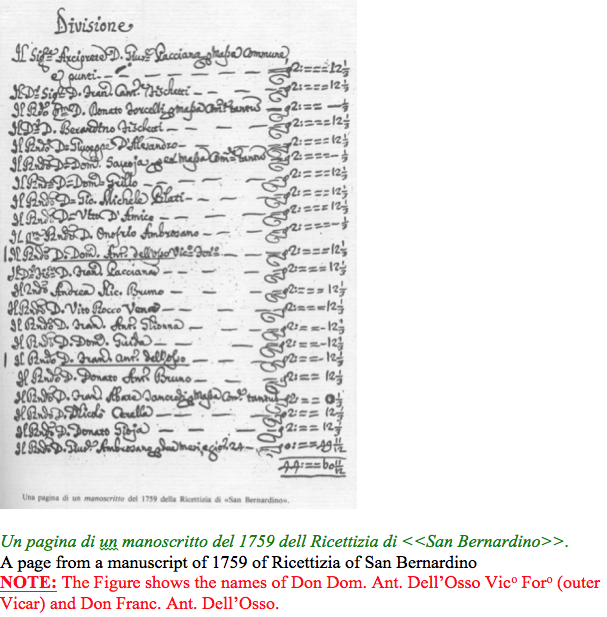 Divisione
Il Sig.r Arciprete D. Gius.e Pacciana, e Massa Commune,
e punti - - - - - - - 2:===12⅓
Il D.r Sig.r D. Fran. Ant. Fischetti - - - 2:===12⅓
Il R.ndo D. Donato Torcelli Massa Com.e tantum - 2:== -⅓
Il D.r D. Berardino Fischetti - - - 2:===12⅓
Il R.ndo D. Giuseppe D'Alesandro - - - 2:===12⅓
Il R.ndo D. Dom. Savoja, ed Massa Com.e tantu 2:===-⅓
Il R.ndo D. Dom. Grillo - - - 2:===12⅓
Il R.ndo D. Gio. Michele Pilati - - - 2:===12⅓
Il R.ndo D. Vito D'Amico - - - 2:===12⅓
Il R.ndo D. Onofrio Ambrosano - - - 2:===-⅓
Il R.ndo D. Dom. Ant. dell'osso Vic.o For.o - - 2:===12⅓
D. Fran. Pacciana - - - 2:===12⅓
Il R.ndo Andrea Nic. Bruno - - - 2:===12⅓
Il R.ndo D. Vito Rocco - - - 2:===12⅓
Il R.ndo D. Fran. Ant. - - - 2:==-12⅓
Il R.ndo D. Dom. Guida - - - 2:==-12⅓
Il R.ndo D. Fran. Ant. dell'osso - - - 2:==-12⅓
Il R.ndo D. Donato Ant. Bruno - - - 2:== 12⅓
Il R.ndo D. Fran. Abate Massa Com.e tantu 2:== 0⅓
Il R.ndo D. Nicolò Cerella - - - 2:== 12⅓
Il R.ndo D. Donato Gioja - - - 2:== 12⅓
Il R.ndo D. Ambrosano due mesi, e gio: 24 - 0:==49 11/12
44:==60 11/12
Una pagina di un manoscritto del 1759 della Ricettizia di «San Bernardino».
Un pagina di un manoscritto del 1759 dell Ricettizia di <<San Bernardino>>.
A page from a manuscript of 1759 of Ricettizia of San Bernardino
NOTE: The Figure shows the names of Don Dom. Ant. Dell'Osso Vicº Forº (outer
Vicar) and Don Franc. Ant. Dell'Osso.